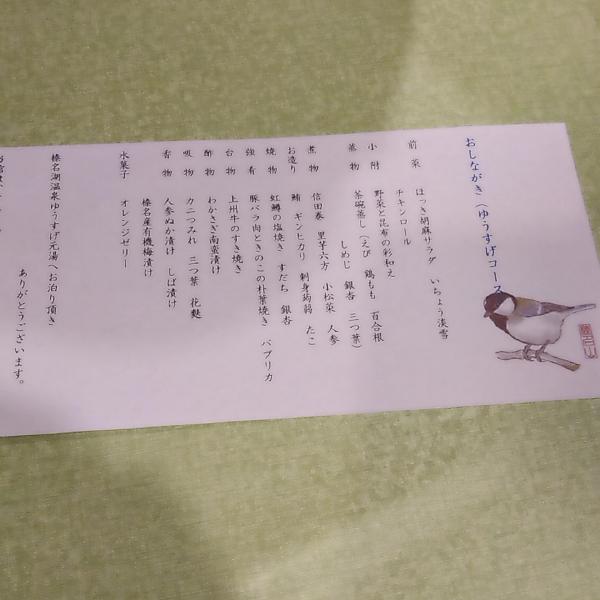 おしながき(ゆうすげコース
前菜 ほっき胡麻サラダ いちょう淡雪
チキンロール
小附 野菜と昆布の彩和え
蒸物 茶碗蒸し(えび 鶏もも 百合根
しめじ 銀杏 三つ葉)
煮物 信田巻 里芋六方 小松菜 人参
お造り 鮪 ギンヒカリ 刺身蒟蒻 たこ
焼物 虹鱒の塩焼き すだち 銀杏
強肴 豚バラ肉ときのこの朴葉焼き パプリカ
台物 上州牛のすき焼き
酢物 わかさぎ南蛮漬け
吸物 カニつみれ 三つ葉 花麩
香物 人参ぬか漬け しば漬け
榛名産有機梅漬け
水菓子 オレンジゼリー
榛名湖温泉ゆうすげ元湯へお泊り頂き
ありがとうございます。